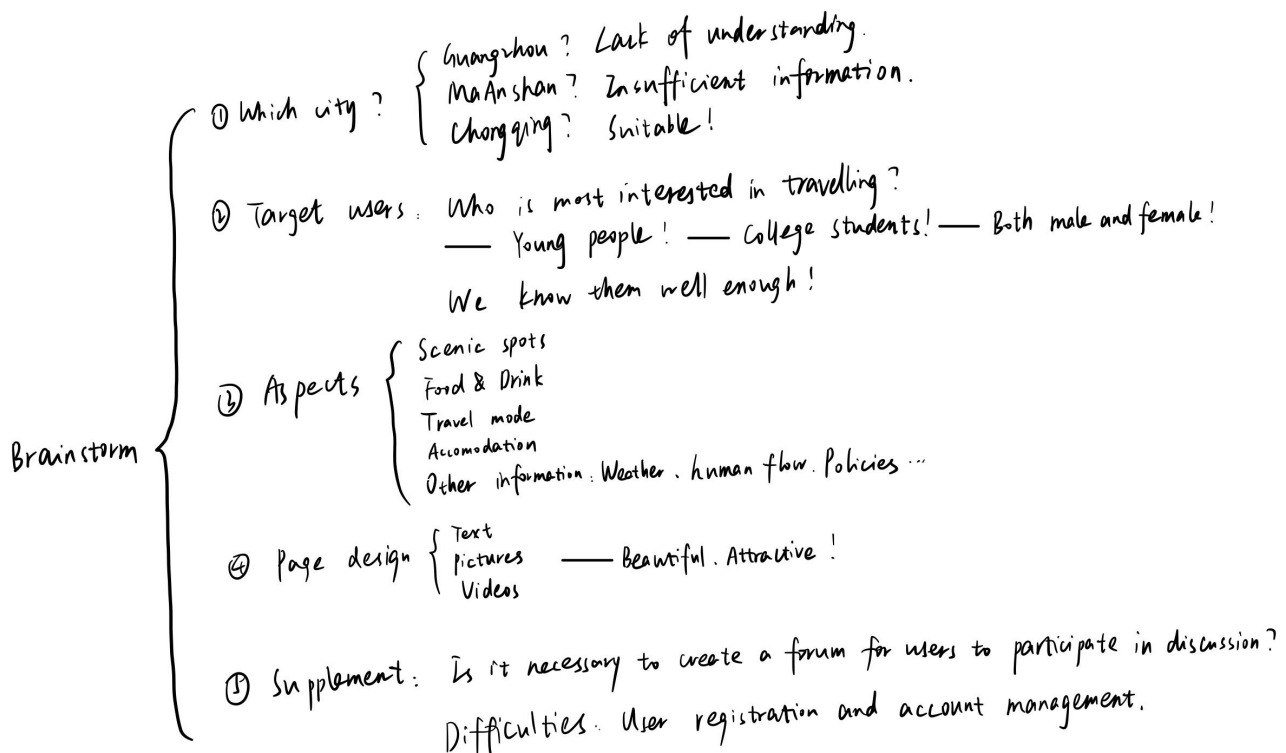 Brainstorm
① Which city?
Guangzhou? Lack of understanding.
MaAnshan? Insufficient information.
Chongqing? Suitable!
② Target users: Who is most interested in travelling?
— Young people! — College students! — Both male and female!
We know them well enough!
③ Aspects
Scenic spots
Food & Drink
Travel mode
Accomodation
Other information: Weather. human flow. Policies...
④ Page design
Text
Pictures
Videos
— Beautiful. Attractive!
⑤ Supplement: Is it necessary to create a forum for users to participate in discussion?
Difficulties: User registration and account management.